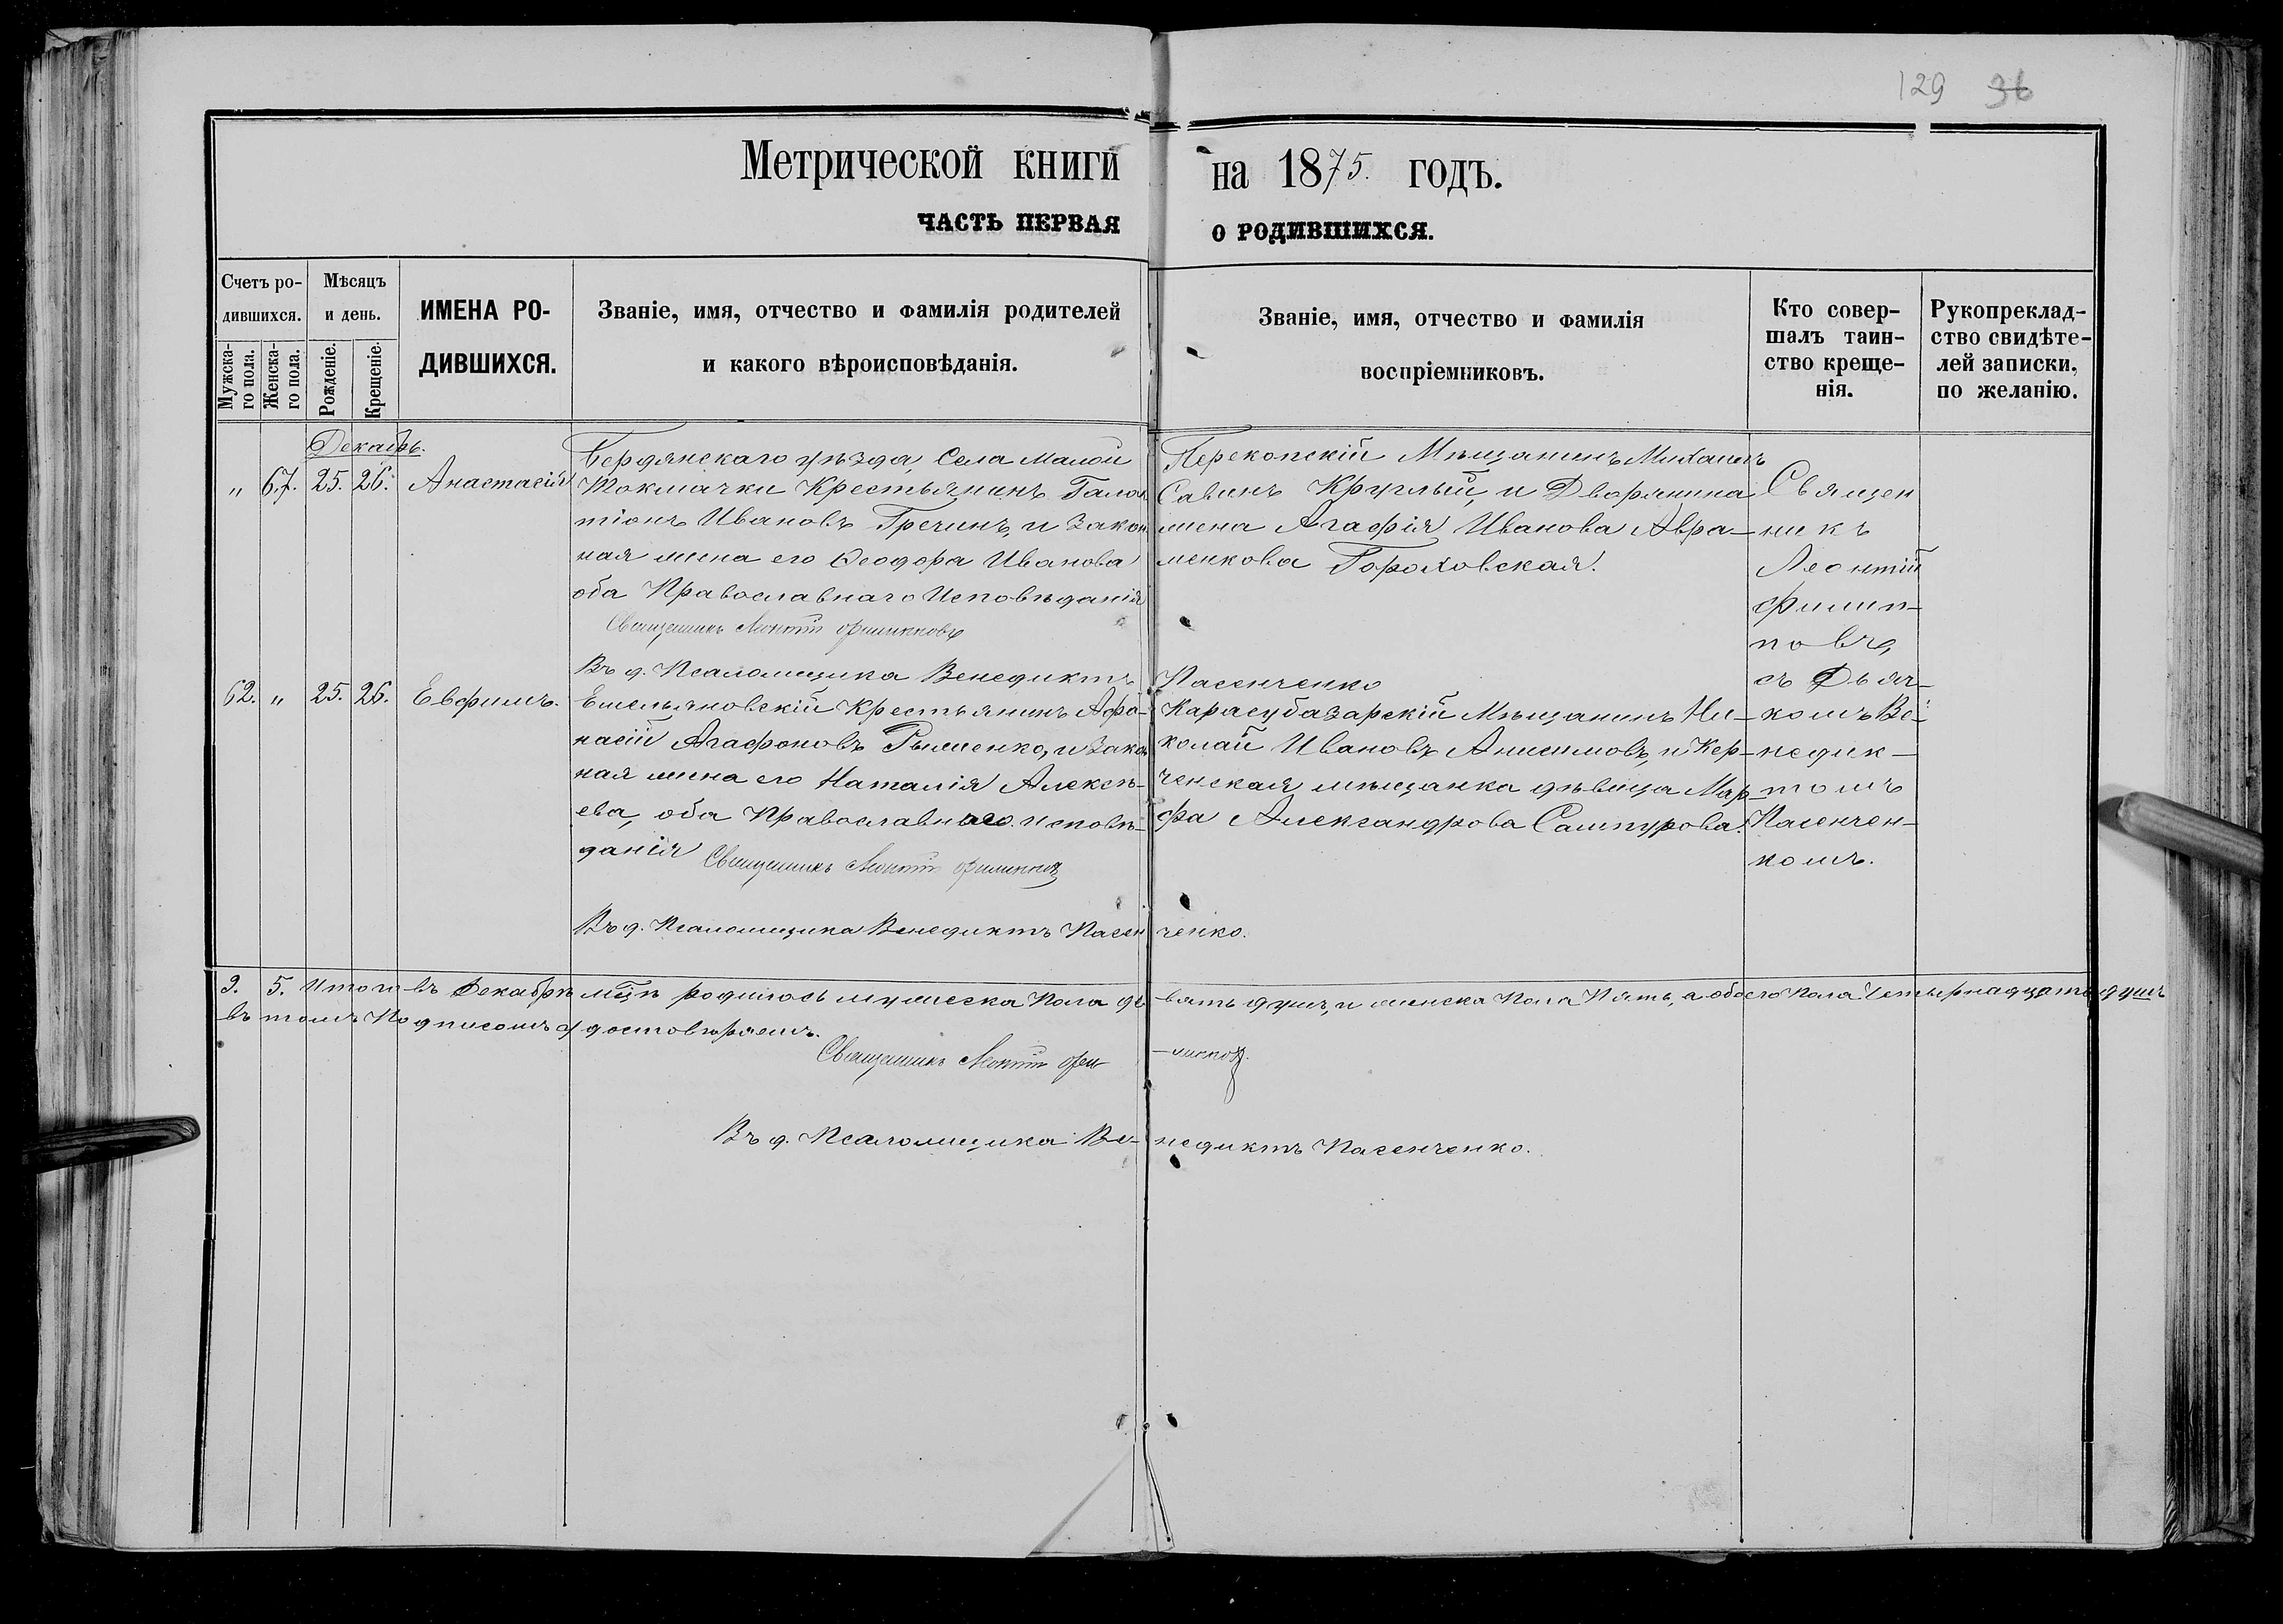 129 36
Метрической книги на 1875. годъ.
ЧАСТЬ ПЕРВАЯ О РОДИВШИХСЯ.
Счетъ ро-
дившихся.
Мужска-
го пола.
Женска-
го пола.
Мѣсяцъ
и день.
Рожденіе.
Крещеніе.
ИМЕНА РО-
ДИВШИХСЯ.
Званіе, имя, отчество и фамилія родителей
и какого вѣроисповѣданія.
Званіе, имя, отчество и фамилія
воспріемниковъ.
Кто совер-
шалъ таин-
ство креще-
нія.
Рукопреклад-
ство свидѣте-
лей записки,
по желанію.
Декабрь.
" 67. 25. 26. Анастасія
Бердянскаго уѣзда, Села Малой
Токмачки Крестьянинъ Галак
тіонъ Ивановъ Гречинъ, и закон
ная жена его Ѳеодора Иванова
оба Православнаго Исповѣданія
Священникъ Леонтій Филипповъ
Въ д. Псаломщика Венедиктъ Пасенченко
Перекопскій Мѣщанинъ Михаилъ
Савинъ Круглый, и Дворянина
жена Агафія Иванова Авра-
менкова Гороховская.
Священ
никъ
Леонтій
Филип-
повъ,
съ Дьяч-
комъ Ве-
недик-
томъ
Пасенчен-
комъ.
62. " 25. 26. Евфимъ.
Емельяновскій Крестьянинъ Афа-
насій Агафоновъ Рыженко, и закон
ная жена его Наталія Алексѣ-
ева, оба Православнаго исповѣ-
данія
Священникъ Леонтій Филипповъ
Въ д. Псаломщика Венедиктъ Пасенченко.
Карасубазарскій Мѣщанинъ Ни-
колай Ивановъ Анисимовъ, и Кер-
ченская мѣщанка дѣвица Мар-
фа Александрова Сампурова.
9. 5. Итого въ Декабрѣ мцѣ родилось мужеска пола девять душъ, и женска пола Пять, а обоего пола Четырнадцать душъ
въ томъ Подписомъ удостовѣряемъ.
Священникъ Леонтій Фи-липповъ.
Въ д. Псаломщика Ве-недиктъ Пасенченко.